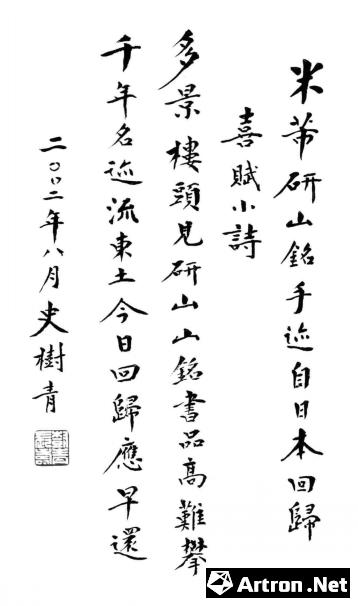 米芾研山銘手迹自日本回歸
喜賦小詩
多景樓頭見研山山銘書品高難攀
千年名迹流東土今日回歸應早還
二〇〇二年八月史樹青
Artron.Net